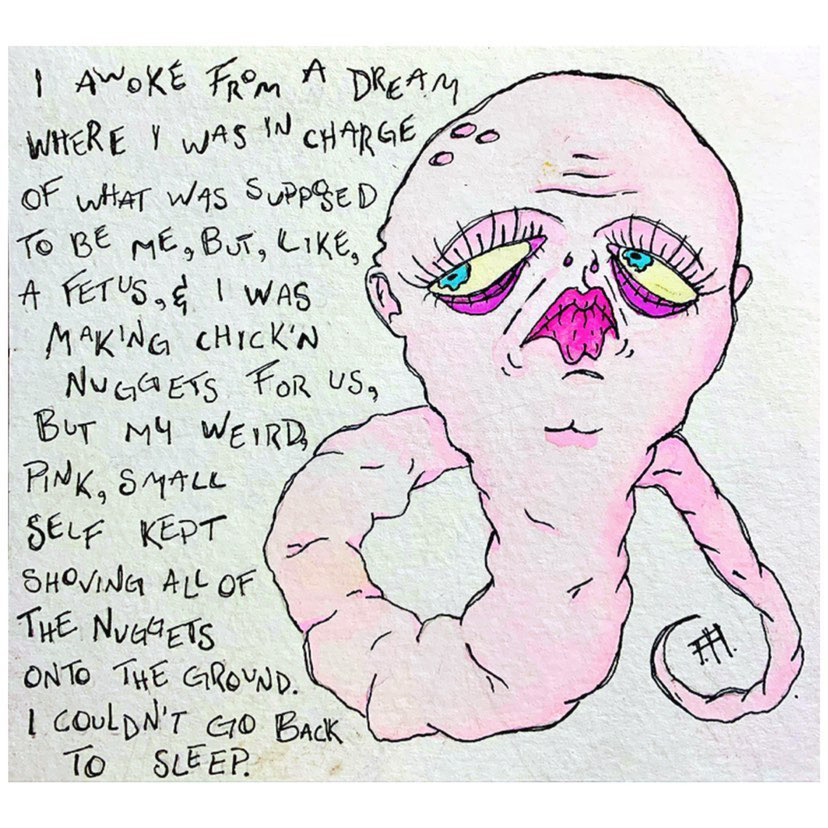 I AWOKE FROM A DREAM
WHERE I WAS IN CHARGE
OF WHAT WAS SUPPOSED
TO BE ME, BUT, LIKE,
A FETUS, & I WAS
MAKING CHICK'N
NUGGETS FOR US,
BUT MY WEIRD,
PINK, SMALL
SELF KEPT
SHOVING ALL OF
THE NUGGETS
ONTO THE GROUND.
I COULDN'T GO BACK
TO SLEEP.